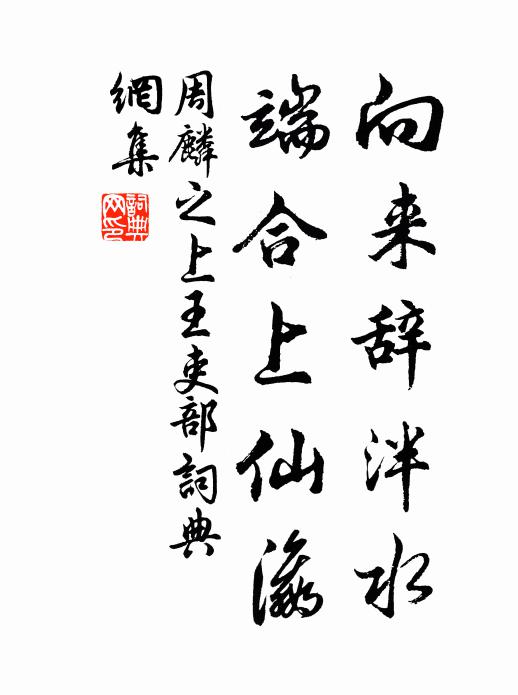 向来辞泮水
端合上仙瀛
周麟之上王吏部詞典
網集
詞典
网印